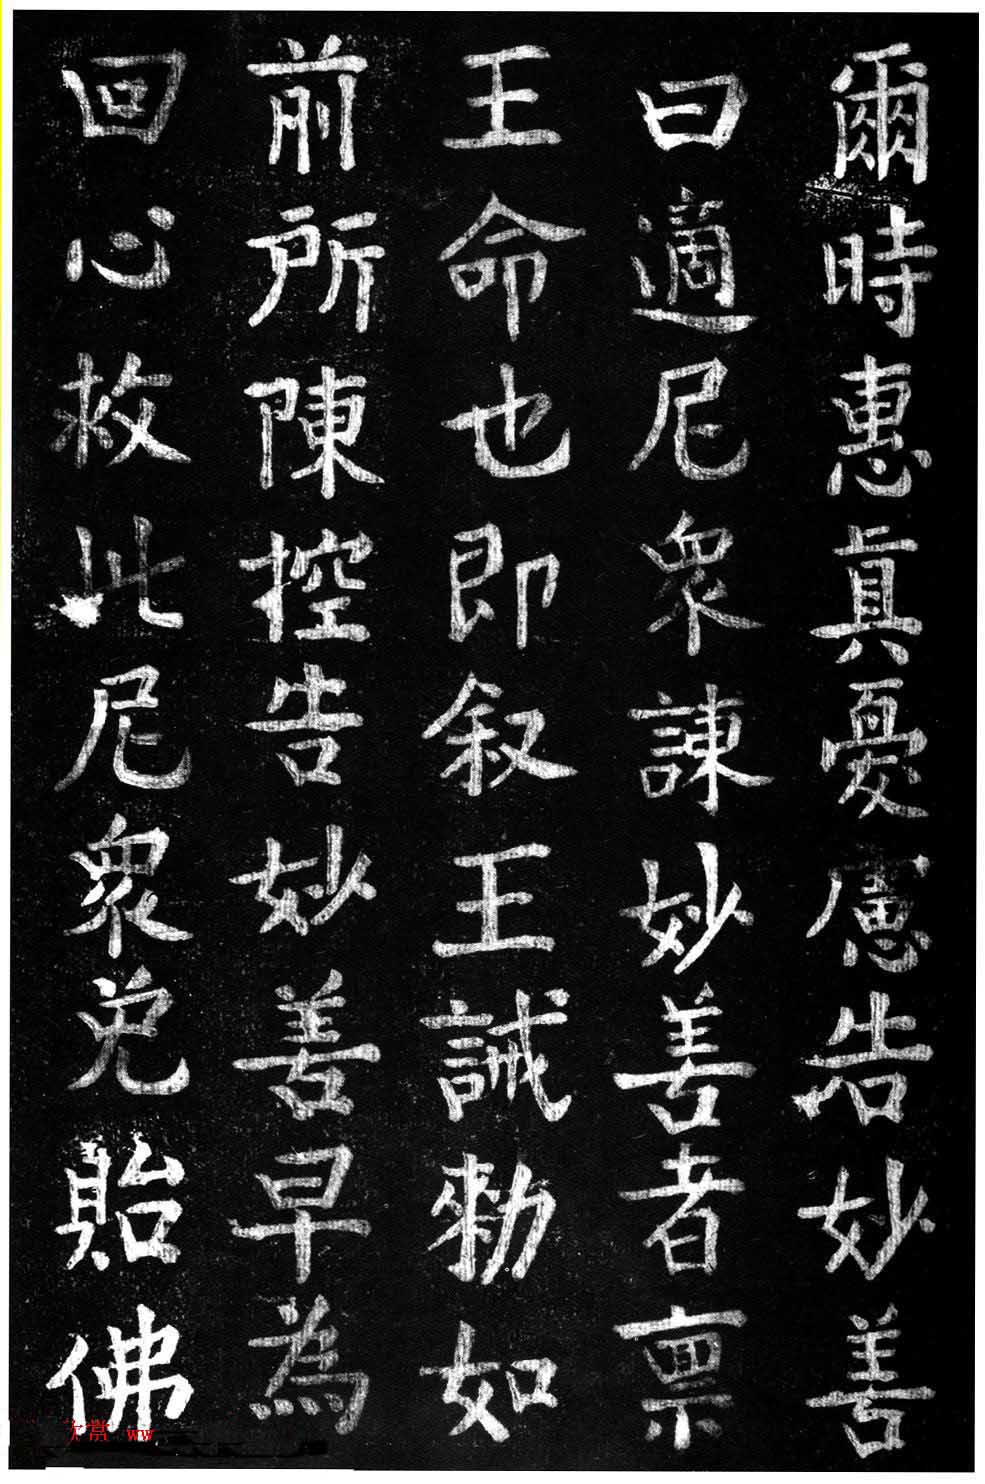 爾時惠真憂慮告妙善
曰適尼衆諫妙善者禀
王命也即叙王誡勑如
前所陳控告妙善早為
回心救此尼衆免貽佛
赏 ww